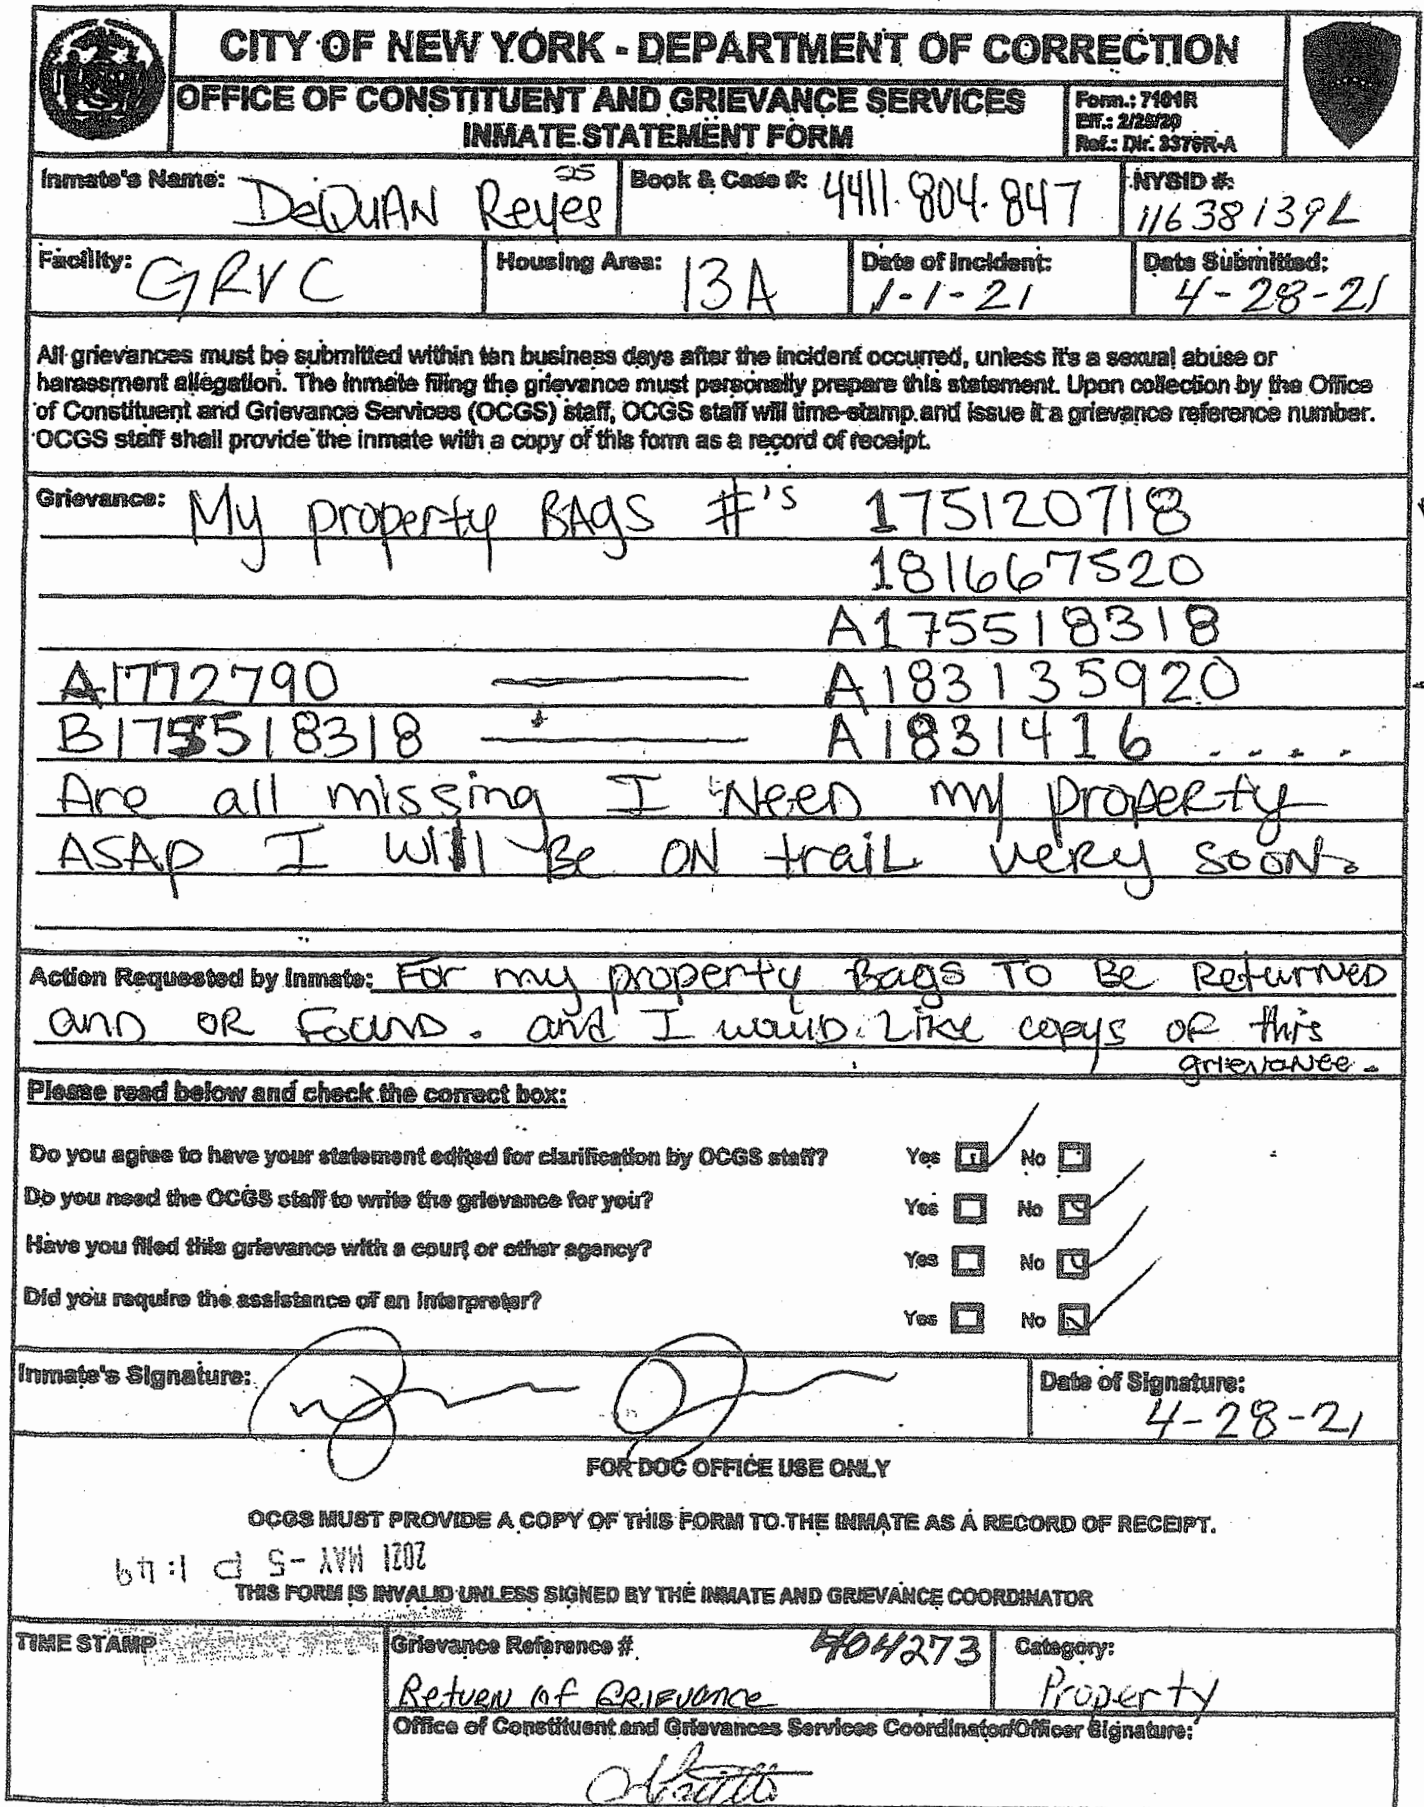 CITY OF NEW YORK - DEPARTMENT OF CORRECTION
OFFICE OF CONSTITUENT AND GRIEVANCE SERVICES
INMATE STATEMENT FORM
Form.: 7101R
Eff.: 2/28/20
Ref.: Dir. 3376R-A
Inmate's Name: DeQUAN Reyes 25
Book & Case #: 4411.804.847
NYSID #: 11638139L
Facility: GRVC
Housing Area: 13A
Date of Incident: 1-1-21
Date Submitted: 4-28-21
All grievances must be submitted within ten business days after the incident occurred, unless it's a sexual abuse or
harassment allegation. The inmate filing the grievance must personally prepare this statement. Upon collection by the Office
of Constituent and Grievance Services (OCGS) staff, OCGS staff will time-stamp and issue it a grievance reference number.
OCGS staff shall provide the inmate with a copy of this form as a record of receipt.
Grievance: My property BAgs #'s 175120718
181667520
A175518318
A1772790 A183135920
B175518318 A1831416 ....
Are all missing I NEED my property
ASAP I will Be ON traiL very SOON.
Action Requested by Inmate: For my property Bags TO Be Returned
and OR Found. and I would Like copys OF this
grievance.
Please read below and check the correct box:
Do you agree to have your statement edited for clarification by OCGS staff? Yes No
Do you need the OCGS staff to write the grievance for you? Yes No
Have you filed this grievance with a court or other agency? Yes No
Did you require the assistance of an interpreter? Yes No
Inmate's Signature:
Date of Signature: 4-28-21
FOR DOC OFFICE USE ONLY
OCGS MUST PROVIDE A COPY OF THIS FORM TO THE INMATE AS A RECORD OF RECEIPT.
2021 MAY -5 P 1:49
THIS FORM IS INVALID UNLESS SIGNED BY THE INMATE AND GRIEVANCE COORDINATOR
TIME STAMP
Grievance Reference # 404273
Return of GRIEVANCE
Category:
Property
Office of Constituent and Grievances Services Coordinator/Officer Signature: